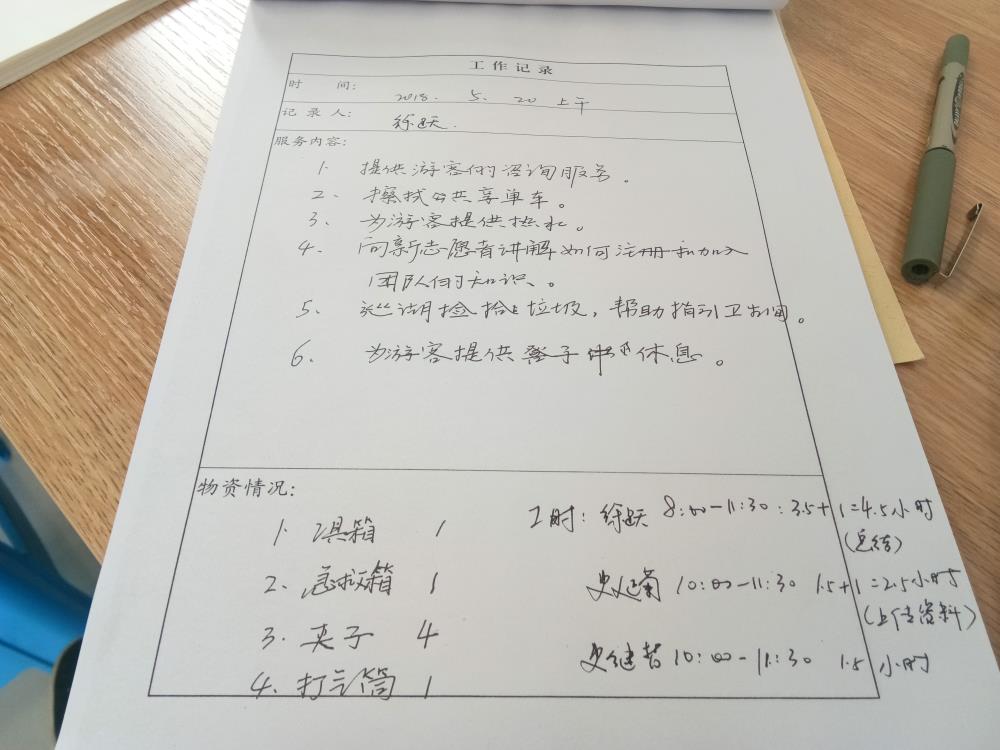 工作记录
时 间: 2018. 5. 20 上午
记录人: 徐跃.
服务内容:
1. 提供游客的咨询服务。
2、擦拭公共享单车。
3、为游客提供热水。
4、向新志愿者讲解如何注册和加入
团队的知识、。
5、巡湖捡拾垃圾,帮助指引卫生间。
6、为游客提供凳子 休息。
物资情况:
1. 箱 1
2、急救箱 1
3. 夹子 4
4. 打气筒 1
工时: 徐跃 8:00-11:30:3.5+1=4.5小时
(总结)
史 10:00-11:30 1.5+1=2.5小时
(上传资料)
史继 10:00-11:30 1.5小时